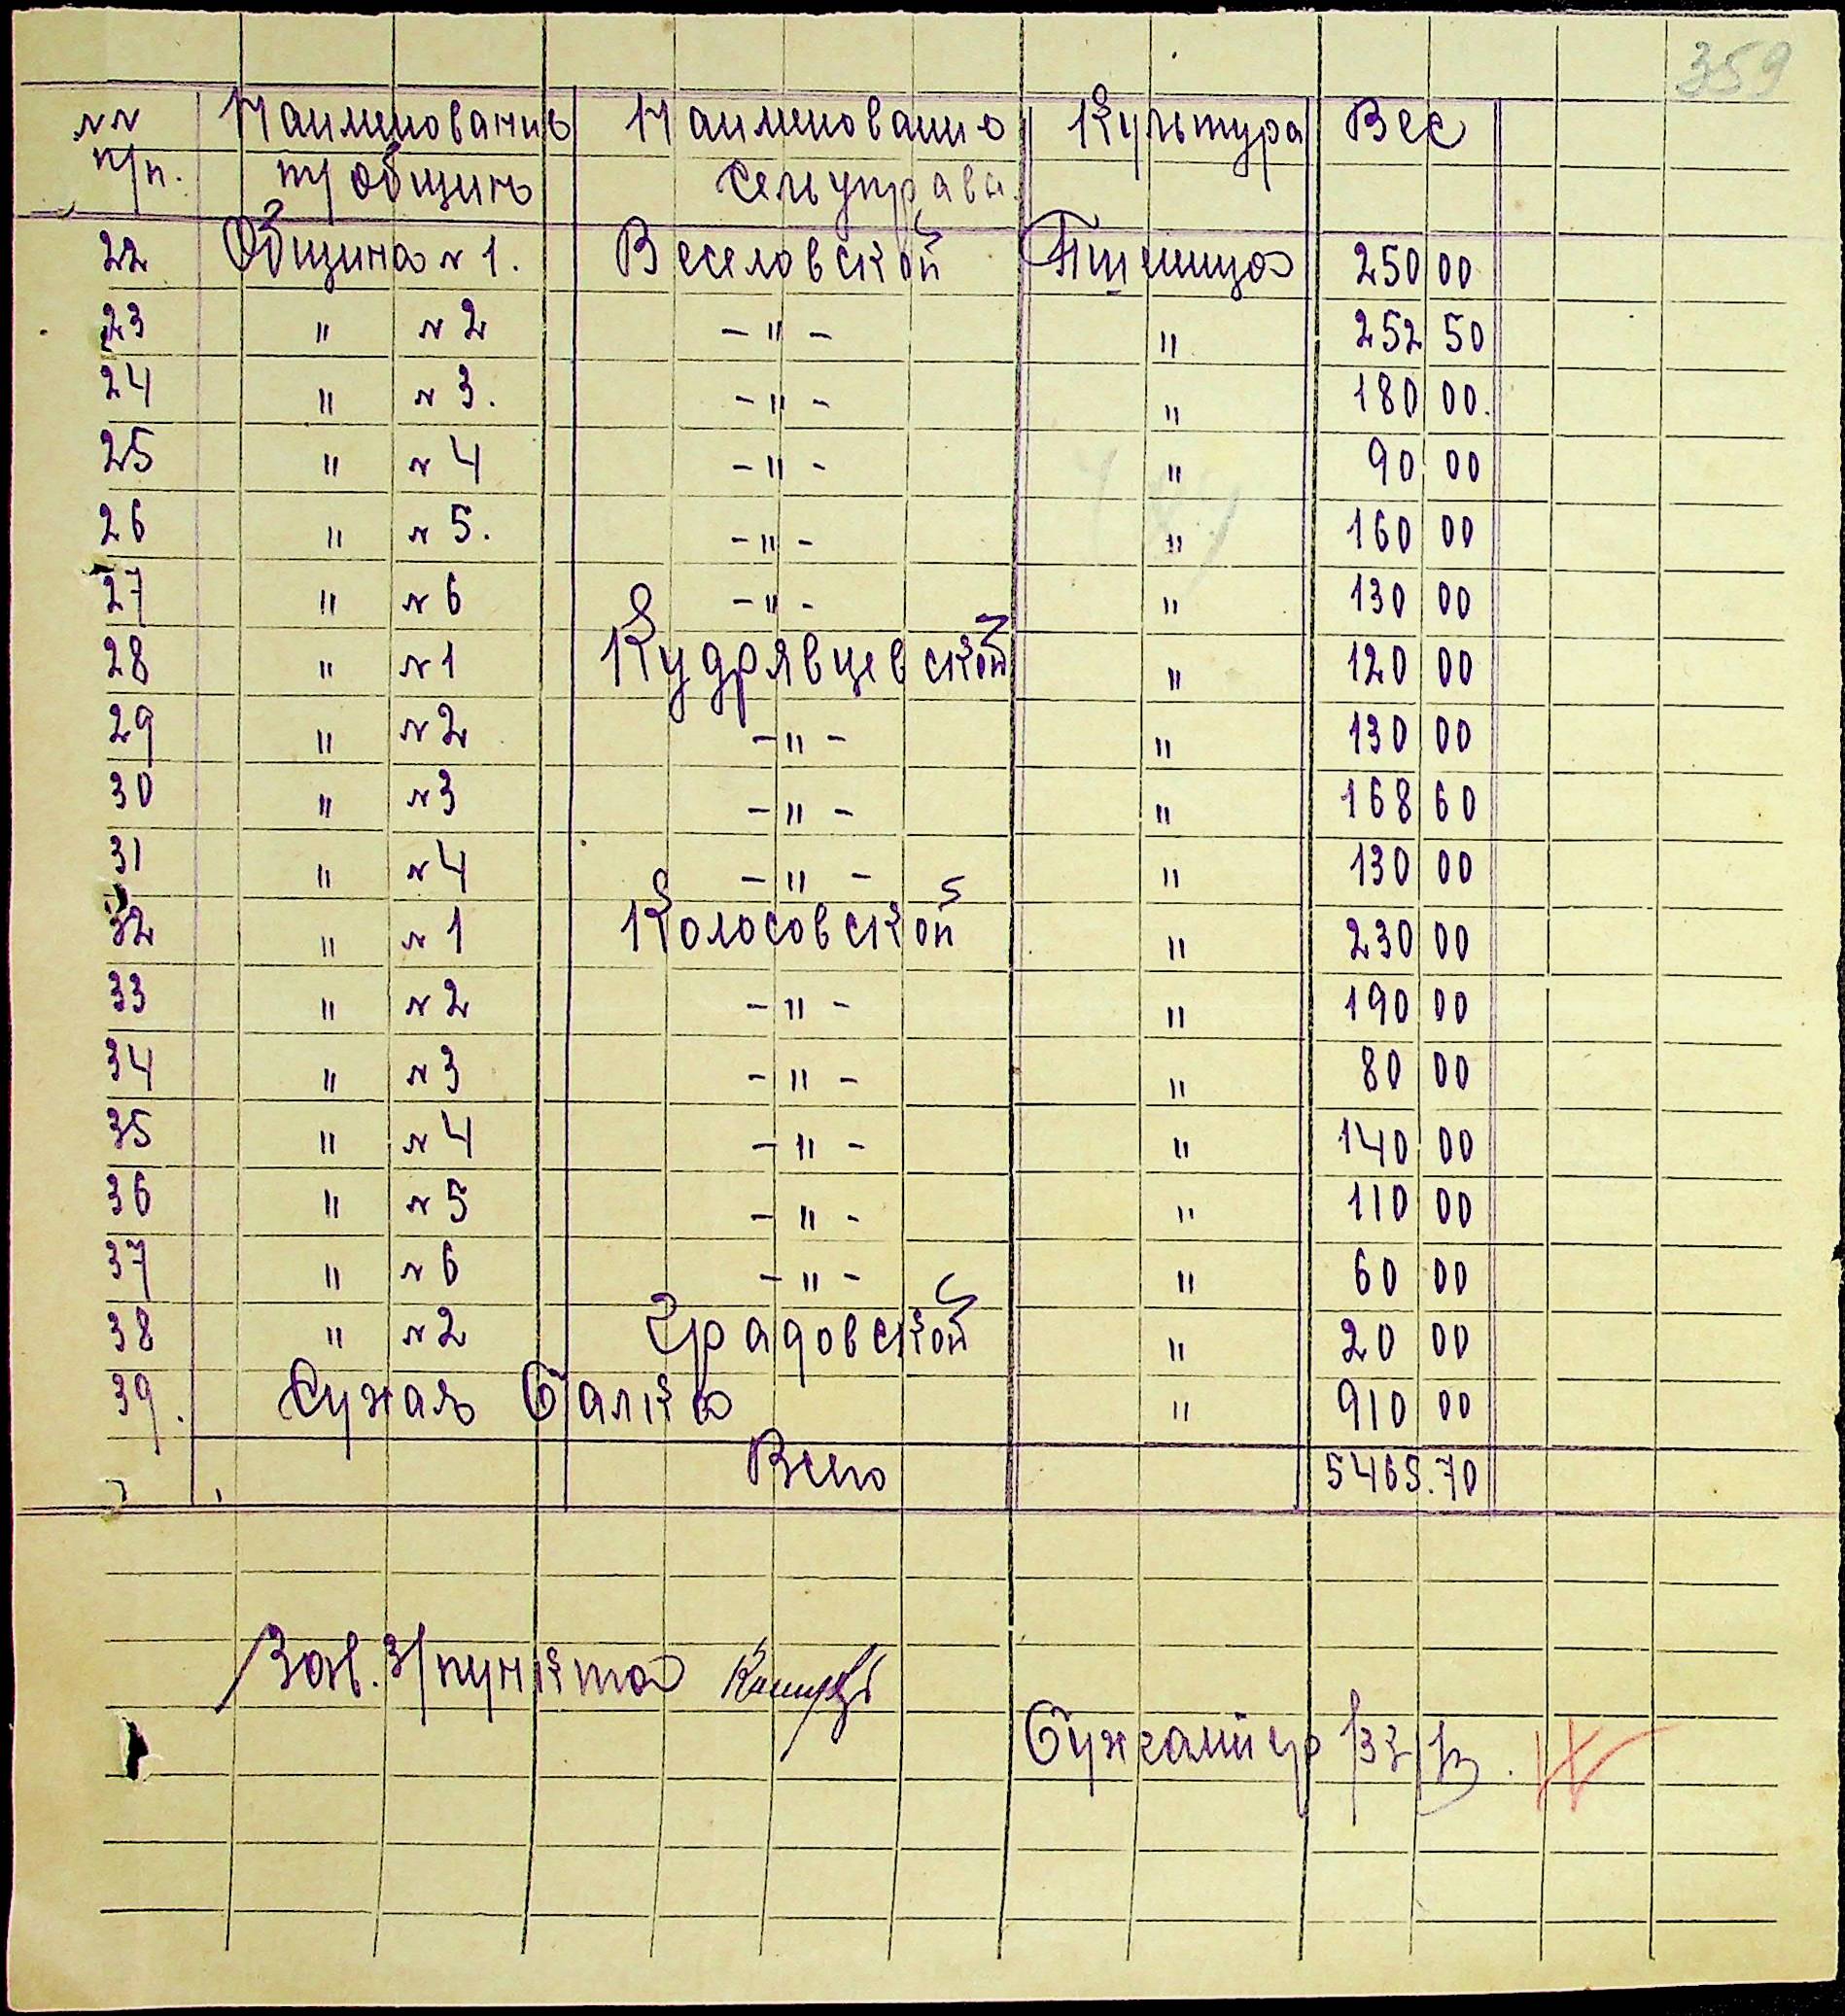 359
№№ Наименование Наименование Культура Вес
п/п. т/общин сельуправы
22 Община № 1. Веселовской Пшеница 250 00
23 " № 2 - " - " 252 50
24 " № 3. - " - " 180 00.
25 " № 4 - " - " 90 00
26 " № 5. - " - " 160 00
27 " № 6 - " - " 130 00
28 " № 1 Кудрявцевской " 120 00
29 " № 2 - " - " 130 00
30 " № 3 - " - " 168 60
31 " № 4 - " - " 130 00
32 " № 1 Колосовской " 230 00
33 " № 2 - " - " 190 00
34 " № 3 - " - " 80 00
35 " № 4 - " - " 140 00
36 " № 5 - " - " 110 00
37 " № 6 - " - " 60 00
38 " № 2 Градовской " 20 00
39. Сухая Балка " 910 00
Всего 5465.70
Зав. З/пункта
Бухгалтер